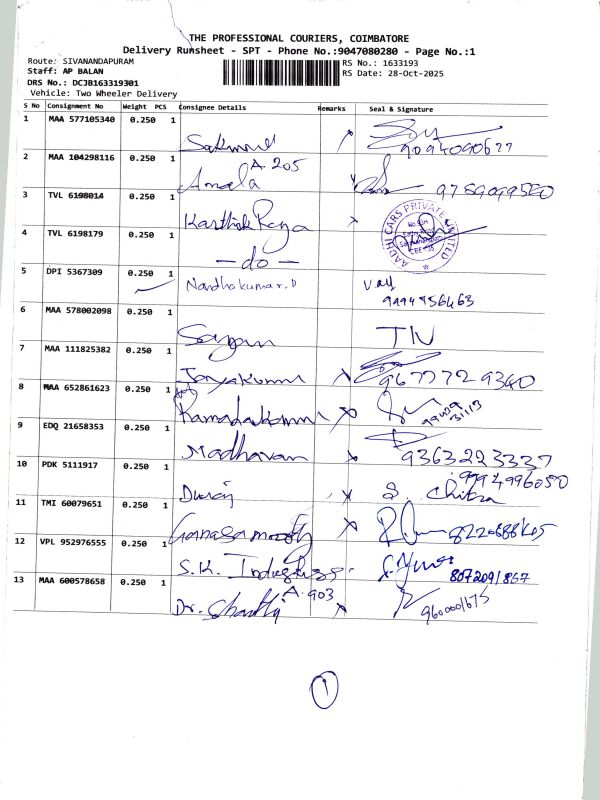 THE PROFESSIONAL COURIERS, COIMBATORE
Delivery Runsheet - SPT - Phone No.:9047080280 - Page No.:1
Route: SIVANANDAPURAM
RS No.: 1633193
Staff: AP BALAN
RS Date: 28-Oct-2025
DRS No.: DCJB163319301
Vehicle: Two Wheeler Delivery
S No Consignment No Weight PCS Consignee Details Remarks Seal & Signature
1 MAA 577105340 0.250 1
9094090677
2 MAA 104298116 0.250 1 A. 205
Amala 9789099580
3 TVL 6198014 0.250 1
Karthik Raja
AADHI CARS PRIVATE LIMITED
4 TVL 6198179 0.250 1
- do -
5 DPI 5367309 0.250 1 Nandhakumar.D
9994956463
6 MAA 578002098 0.250 1
7 MAA 111825382 0.250 1
Jayakumar 9677729340
8 MAA 652861623 0.250 1
9 EDQ 21658353 0.250 1
Madhavan 9363223337
10 PDK 5111917 0.250 1 9994996050
Duraj S. Chitra
11 TMI 60079651 0.250 1
12 VPL 952976555 0.250 1
S.K.
13 MAA 600578658 0.250 1 A. 903
Dr. 9600001675
1